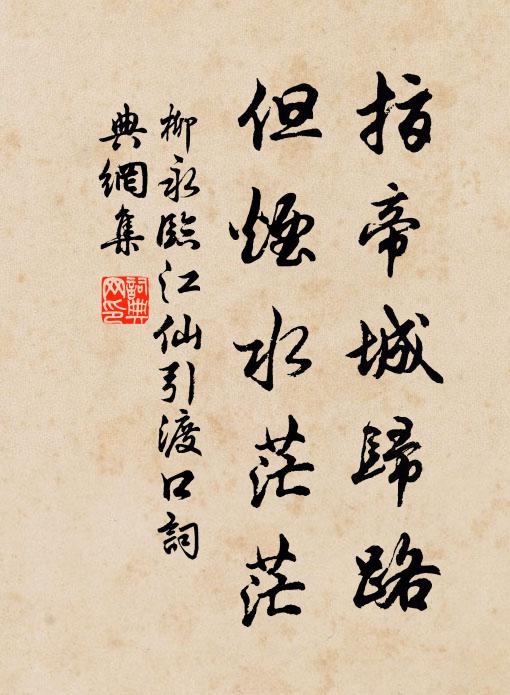 指帝城歸路
但煙水茫茫
柳永臨江仙引渡口詞
典網集
詞典
网印